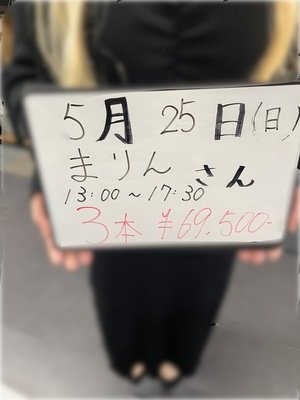 5月25日(日)
まりんさん
13:00〜17:30
3本 ¥69,500-